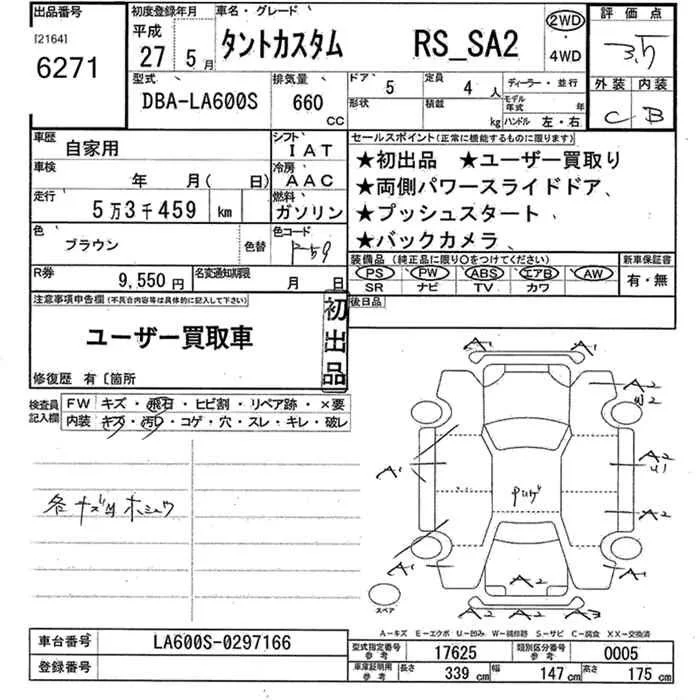 出品番号
[2164]
6271
初度登録年月
平成
27 5月
車名・グレード
タントカスタム RS_SA2
2WD
・
4WD
評価点
3.5
外装 内装
C B
型式
DBA-LA600S
排気量
660
CC
ドア 5
定員 4 人
形状
積載 kg
ディーラー・並行
モデル年式 年
ハンドル 左・右
車歴 自家用
シフト IAT
車検 年 月( 日)
冷房 AAC
走行 5万3千459 km
燃料 ガソリン
色 ブラウン 色替
色コード
R券 9,550円
名変通知期限 月 日
セールスポイント(正常に機能するものに限ります)
★初出品 ★ユーザー買取り
★両側パワースライドドア、
★プッシュスタート
★バックカメラ
装備品 (純正品に限り○をつけてください)
PS PW ABS エアB AW
SR ナビ TV カワ
新車保証書
有・無
後日品
注意事項申告欄(不具合内容等は具体的に記入して下さい)
ユーザー買取車
初出品
修復歴 有〔箇所
検査員記入欄
FW キズ・飛石・ヒビ割・リペア跡・×要
内装 キズ・汚レ・コゲ・穴・スレ・キレ・破レ
A1 A1
A2
A1
A2
A1
A2
A2
A2 A2 A3
スペア
A-キズ E-エクボ U-凹み W-補修跡 S-サビ C-腐食 XX-交換済
車台番号 LA600S-0297166
登録番号
型式指定番号参考 17625
類別区分番号参考 0005
車庫証明用参考 長さ 339 cm 幅 147 cm 高さ 175 cm